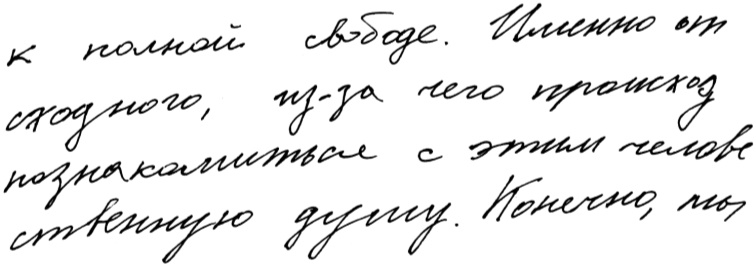 к полной свободе. Именно от
сходного, из-за чего происход
познакомиться с этим челове
ственную душу. Конечно, мы